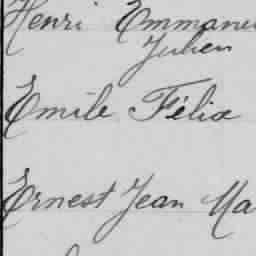 Henri Emmanu
Julien
Emile Félix
Ernest Jean Ma